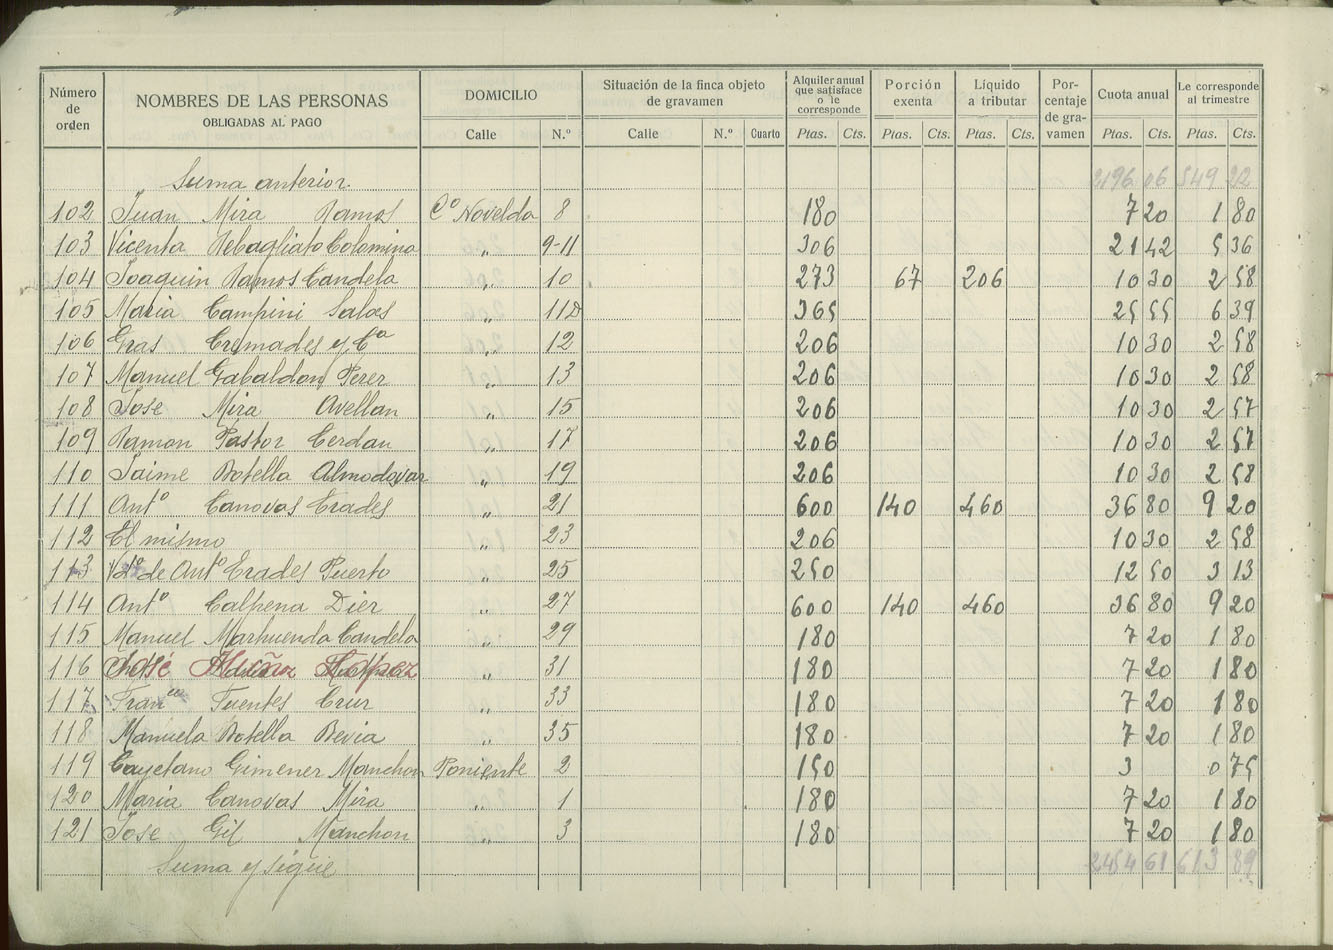 Número de orden | NOMBRES DE LAS PERSONAS OBLIGADAS AL PAGO | DOMICILIO | Situación de la finca objeto de gravamen | Alquiler anual que satisface o le corresponde | Porción exenta | Líquido a tributar | Por-centaje de gra-vamen | Cuota anual | Le corresponde al trimestre
Calle | N.º | Calle | N.º | Cuarto | Ptas. | Cts. | Ptas. | Cts. | Ptas. | Cts. | Ptas. | Cts. | Ptas. | Cts.
Suma anterior. 2196 06 549 22
102 Juan Mira Ramos Cº Novelda 8 180 7 20 1 80
103 Vicenta Rebagliato Colomina " 9-11 306 21 42 5 36
104 Joaquin Ramos Candela " 10 273 67 206 10 30 2 58
105 Maria Campini Salas " 11D 365 25 55 6 39
106 Gras Cremades y Cª " 12 206 10 30 2 58
107 Manuel Gabaldon Perez " 13 206 10 30 2 58
108 Jose Mira Avellan " 15 206 10 30 2 57
109 Ramon Pastor Cerdan " 17 206 10 30 2 57
110 Jaime Botella Almodovar " 19 206 10 30 2 58
111 Antº Canovas Erades " 21 600 140 460 36 80 9 20
112 El mismo " 23 206 10 30 2 58
113 Vdª de Antº Erades Puerto " 25 250 12 50 3 13
114 Antº Calpena Diez " 27 600 140 460 36 80 9 20
115 Manuel Marhuenda Candela " 29 180 7 20 1 80
116 José Muñoz López " 31 180 7 20 1 80
117 Franco Fuentes Cruz " 33 180 7 20 1 80
118 Manuela Botella Bevia " 35 180 7 20 1 80
119 Cayetano Gimenez Manchon Poniente 2 150 3 0 75
120 Maria Canovas Mira " 1 180 7 20 1 80
121 Jose Gil Manchon " 3 180 7 20 1 80
Suma y sigue 2454 61 613 89